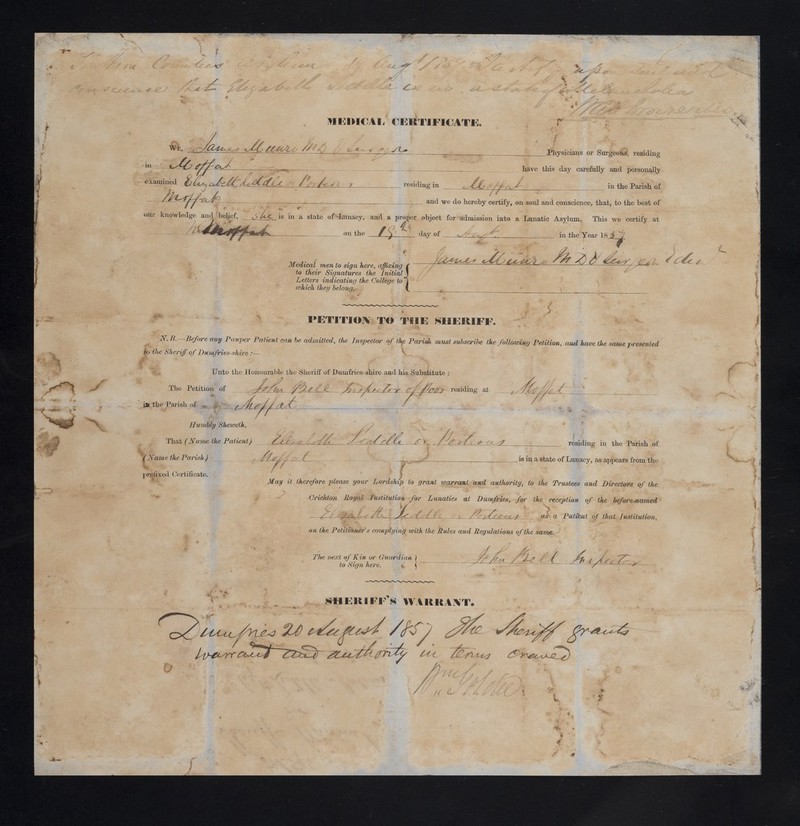 Elizabeth Liddle is in a state of Melancholia
MEDICAL CERTIFICATE.
We, James Munro MD & Surgeon Physicians or Surgeons, residing
in Moffat have this day carefully and personally
examined Elizabeth Liddle or Porteous residing in Moffat in the Parish of
Moffat and we do hereby certify, on soul and conscience, that, to the best of
our knowledge and belief, she is in a state of Lunacy, and a proper object for admission into a Lunatic Asylum. This we certify at
Moffat on the 19th day of Augt in the Year 1857
Medical men to sign here, affixing
to their Signatures the Initial
Letters indicating the College to
which they belong.
James Munro MD & Surgeon Edinr
PETITION TO THE SHERIFF.
N.B.—Before any Pauper Patient can be admitted, the Inspector of the Parish must subscribe the following Petition, and have the same presented
to the Sheriff of Dumfries-shire :—
Unto the Honourable the Sheriff of Dumfries-shire and his Substitute ;
The Petition of John Bell Inspector of Poor residing at Moffat
in the Parish of Moffat
Humbly Sheweth,
That (Name the Patient) Elizabeth Liddle or Porteous residing in the Parish of
(Name the Parish) Moffat is in a state of Lunacy, as appears from the
prefixed Certificate.
May it therefore please your Lordship to grant warrant and authority, to the Trustees and Directors of the
Crichton Royal Institution for Lunatics at Dumfries, for the reception of the before-named
Elizabeth Liddle or Porteous as a Patient of that Institution,
on the Petitioner's complying with the Rules and Regulations of the same.
The next of Kin or Guardian
to Sign here.
John Bell Inspector
SHERIFF'S WARRANT.
Dumfries 20 August 1857 The Sheriff grants
warrant and authority in terms craved
Wm